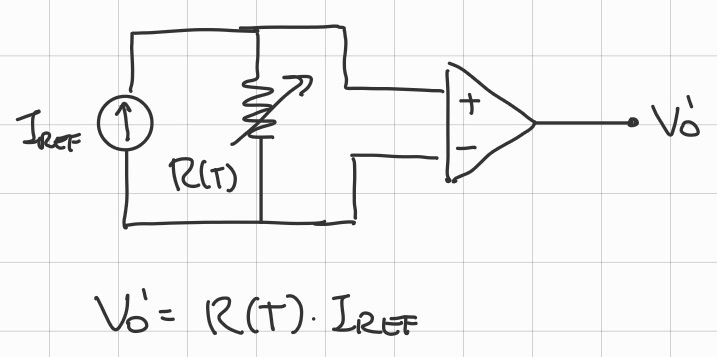 I_REF
R(T)
+
−
Vo'
Vo' = R(T) · I_REF